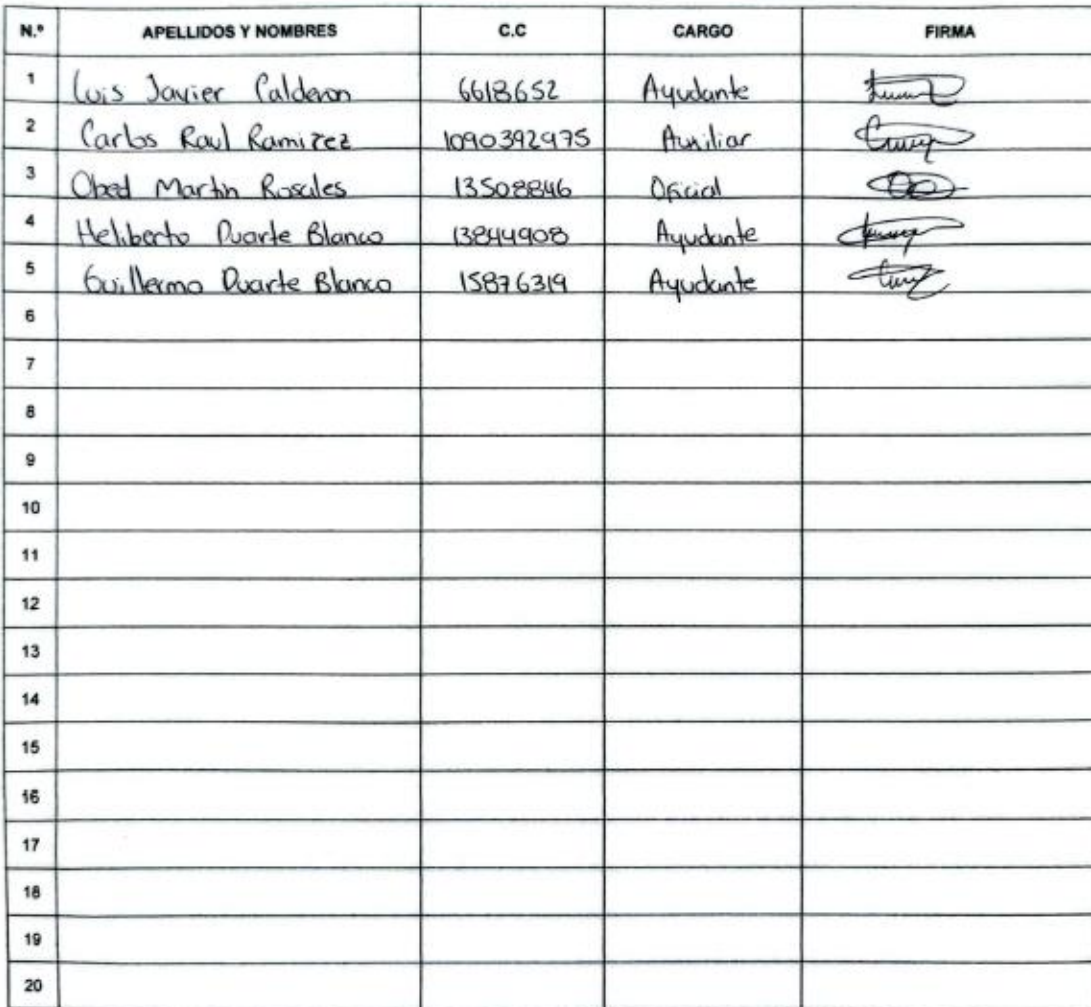 N.º APELLIDOS Y NOMBRES C.C CARGO FIRMA
1 Luis Javier Calderon 6618652 Ayudante
2 Carlos Raul Ramirez 1090392975 Auxiliar
3 Obed Martin Rosales 13508846 Oficial
4 Heliberto Duarte Blanco 13844908 Ayudante
5 Guillermo Duarte Blanco 15876319 Ayudante
6
7
8
9
10
11
12
13
14
15
16
17
18
19
20